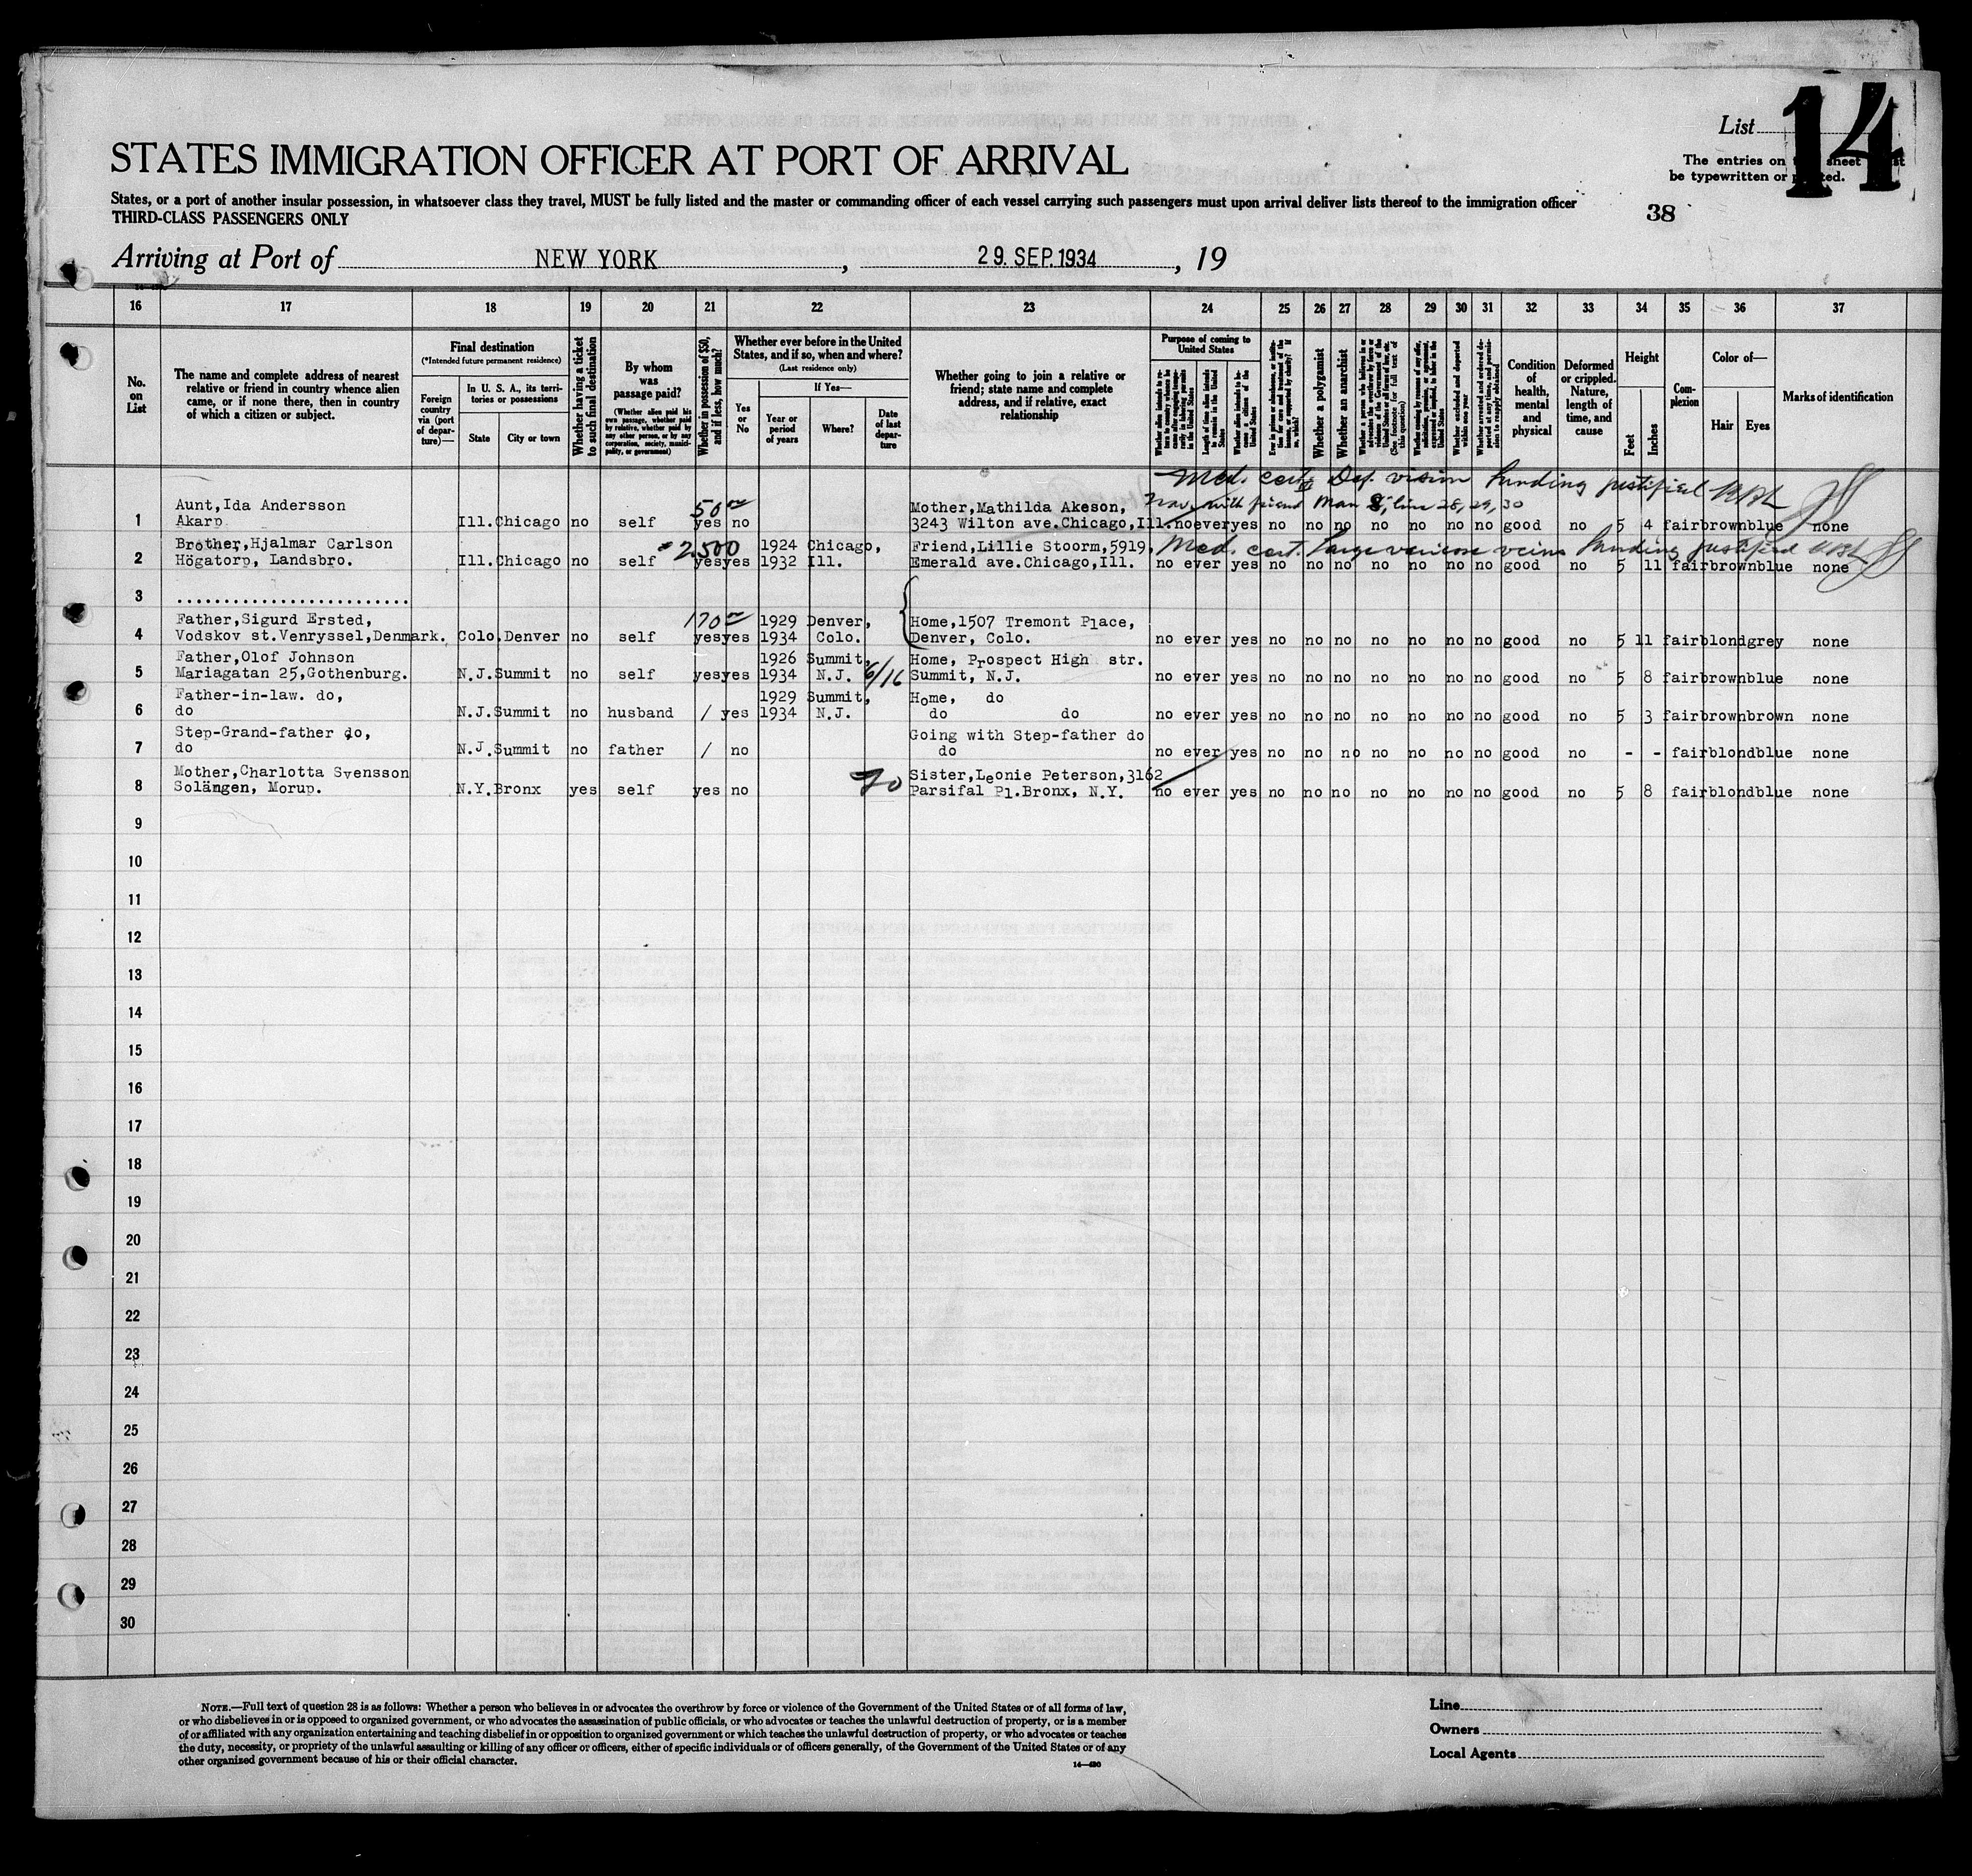 List
14
The entries on sheet
be typewritten or
38
STATES IMMIGRATION OFFICER AT PORT OF ARRIVAL
States, or a port of another insular possession, in whatsoever class they travel, MUST be fully listed and the master or commanding officer of each vessel carrying such passengers must upon arrival deliver lists thereof to the immigration officer
THIRD-CLASS PASSENGERS ONLY
Arriving at Port of NEW YORK, 29. SEP. 1934, 19
16 17 18 19 20 21 22 23 24 25 26 27 28 29 30 31 32 33 34 35 36 37
No. on List
The name and complete address of nearest
relative or friend in country whence alien
came, or if none there, then in country
of which a citizen or subject.
Final destination
(*Intended future permanent residence)
Foreign country via (port of departure)—
In U. S. A., its territories or possessions
State
City or town
Whether having a ticket to such final destination
By whom was passage paid?
(Whether alien paid his own passage, whether paid by relative, whether paid by any other person, or by any corporation, society, municipality, or government)
Whether in possession of $50, and if less, how much?
Whether ever before in the United
States, and if so, when and where?
(Last residence only)
Yes or No
If Yes—
Year or period of years
Where?
Date of last departure
Whether going to join a relative or
friend; state name and complete
address, and if relative, exact
relationship
Purpose of coming to United States
Length of time alien intends to remain in the United States
Whether alien intends to become a citizen of the United States
Whether a polygamist
Whether an anarchist
Condition of health, mental and physical
Deformed or crippled. Nature, length of time, and cause
Height
Feet
Inches
Complexion
Color of—
Hair
Eyes
Marks of identification
Med. cert. Def. vision Landing justified
trav. with friend Man 8, line 28, 29, 30
Aunt,Ida Andersson 50 Mother,Mathilda Akeson,
1 Akarp Ill. Chicago no self yes no 3243 Wilton ave.Chicago,Ill. no ever yes no no no no no no no good no 5 4 fair brown blue none
Brother,Hjalmar Carlson 2500 1924 Chicago, Friend,Lillie Stoorm,5919, Med. cert. Large varicose veins Landing justified
2 Högatorp, Landsbro. Ill. Chicago no self yes yes 1932 Ill. Emerald ave.Chicago,Ill. no ever yes no no no no no no no good no 5 11 fair brown blue none
3 ........................
Father,Sigurd Ersted, 170 1929 Denver, Home,1507 Tremont Place,
4 Vodskov st.Venryssel,Denmark. Colo. Denver no self yes yes 1934 Colo. Denver, Colo. no ever yes no no no no no no no good no 5 11 fair blond grey none
Father,Olof Johnson 1926 Summit, Home, Prospect High str.
5 Mariagatan 25,Gothenburg. N.J. Summit no self yes yes 1934 N.J. 6/16 Summit, N.J. no ever yes no no no no no no no good no 5 8 fair brown blue none
Father-in-law. do, 1929 Summit, Home, do
6 do N.J. Summit no husband / yes 1934 N.J. do do no ever yes no no no no no no no good no 5 3 fair brown brown none
Step-Grand-father do, Going with Step-father do
7 do N.J. Summit no father / no do no ever yes no no no no no no no good no - - fair blond blue none
Mother,Charlotta Svensson 70 Sister,Leonie Peterson,3162
8 Solängen, Morup. N.Y. Bronx yes self yes no Parsifal Pl.Bronx, N.Y. no ever yes no no no no no no no good no 5 8 fair blond blue none
9
10
11
12
13
14
15
16
17
18
19
20
21
22
23
24
25
26
27
28
29
30
NOTE.—Full text of question 28 is as follows: Whether a person who believes in or advocates the overthrow by force or violence of the Government of the United States or of all forms of law,
or who disbelieves in or is opposed to organized government, or who advocates the assassination of public officials, or who advocates or teaches the unlawful destruction of property, or is a member
of or affiliated with any organization entertaining and teaching disbelief in or opposition to organized government or which teaches the unlawful destruction of property, or who advocates or teaches
the duty, necessity, or propriety of the unlawful assaulting or killing of any officer or officers, either of specific individuals or of officers generally, of the Government of the United States or of any
other organized government because of his or their official character.
14—430
Line
Owners
Local Agents